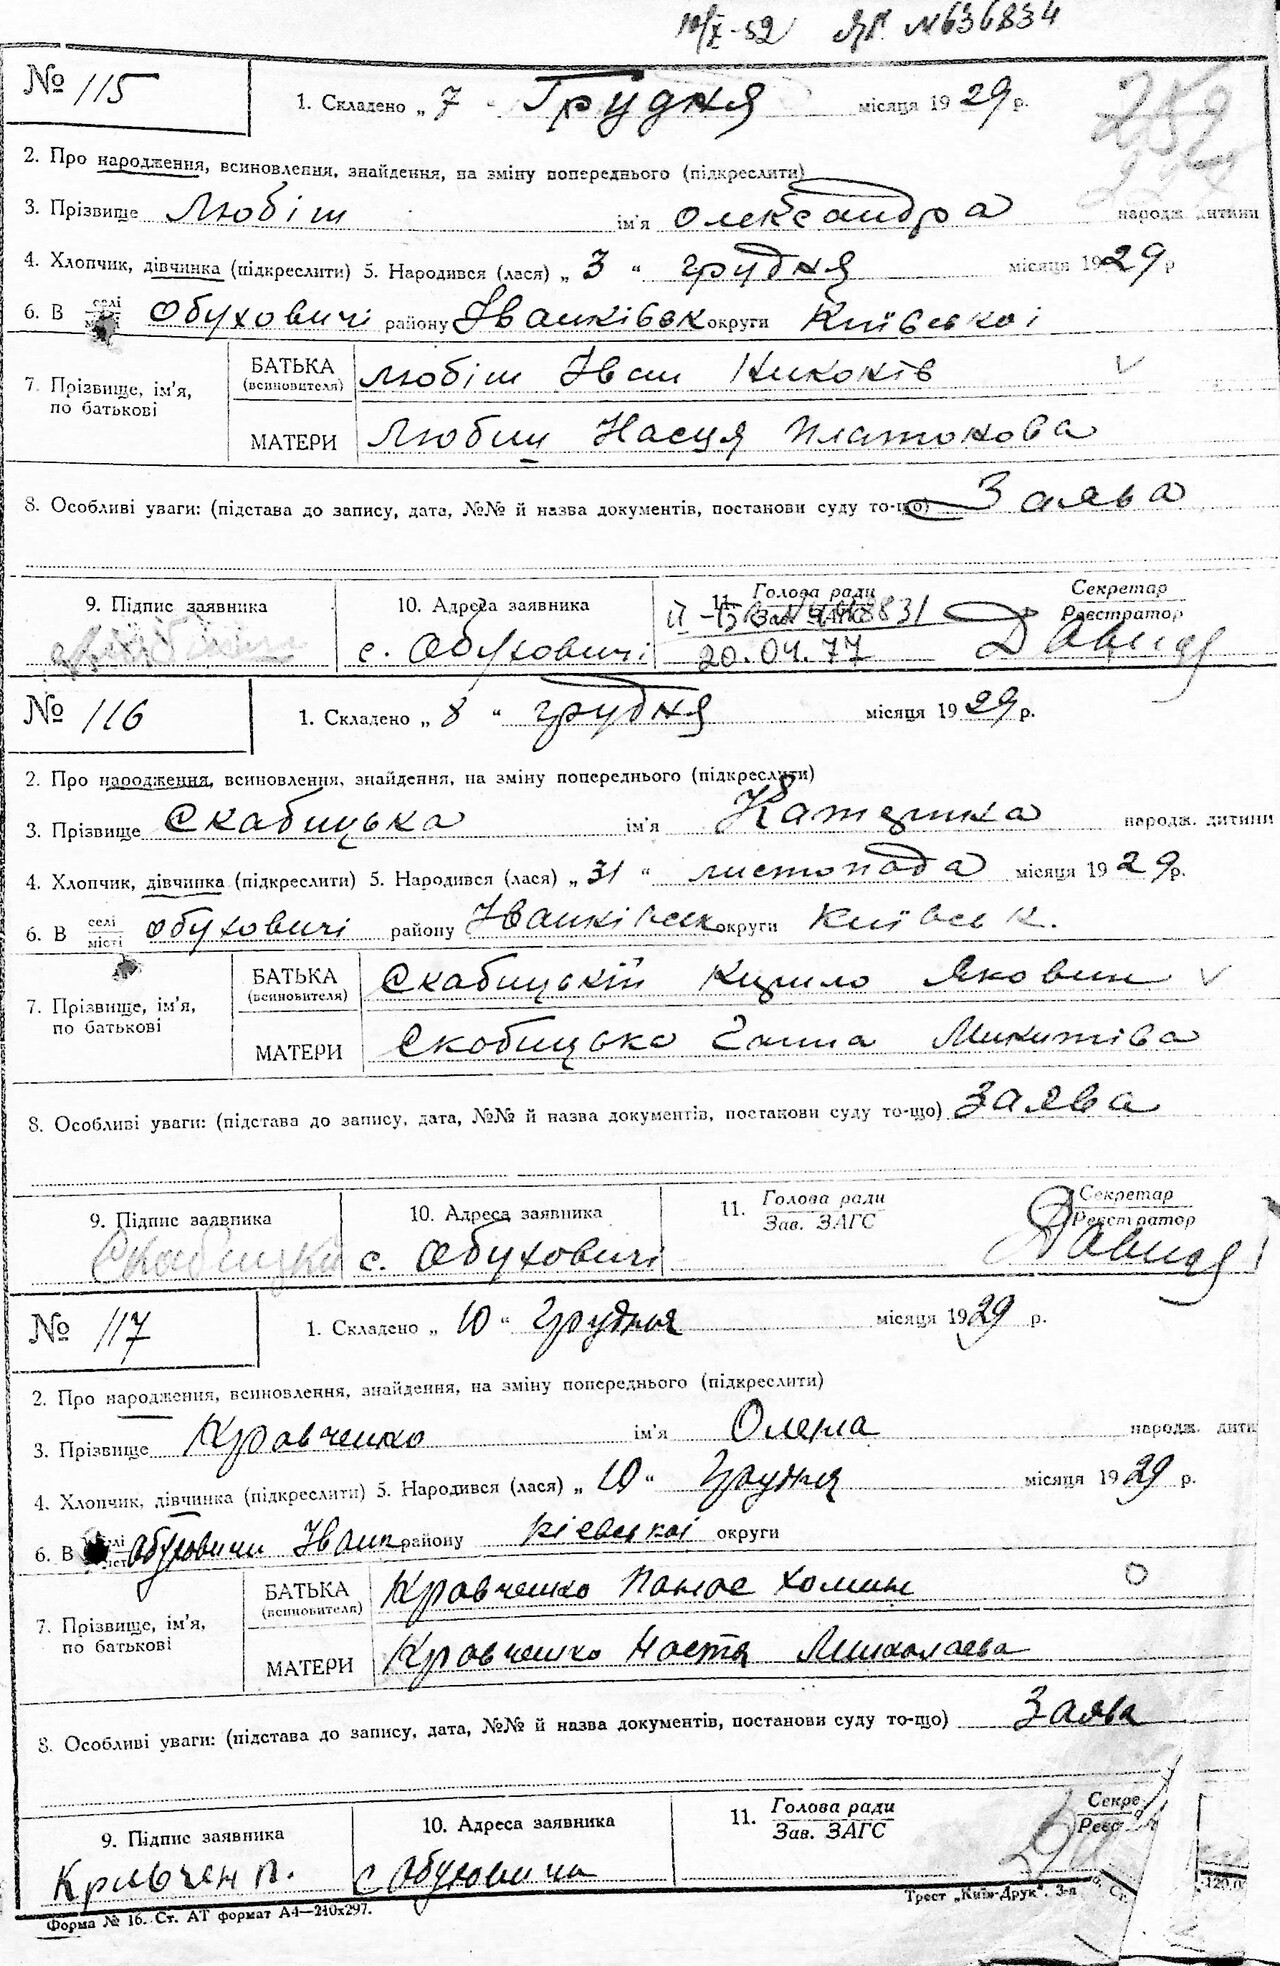 10/X-52 ЯР № 636834
№ 115
1. Складено „ 7 " Грудня місяця 1929 р.
2. Про народження, всиновлення, знайдення, на зміну попереднього (підкреслити)
3. Прізвище Любіш ім'я Олександра народж. дитини
4. Хлопчик, дівчинка (підкреслити) 5. Народився (лася) „ 3 " грудня місяця 1929 р
6. В селі Обуховичі району Іванківськ округи Київської
7. Прізвище, ім'я, по батькові
БАТЬКА (всиновителя) Любіш Іван
МАТЕРИ Насця Платонова
8. Особливі уваги: (підстава до запису, дата, №№ й назва документів, постанови суду то-що) Заява
9. Підпис заявника 10. Адреса заявника 11. Голова ради Зав. ЗАГС Секретар Реєстратор
с. Обуховичі 20.04.77
№ 116
1. Складено „ 8 " грудня місяця 1929 р.
2. Про народження, всиновлення, знайдення, на зміну попереднього (підкреслити)
3. Прізвище Скабицька ім'я Катерина народж. дитини
4. Хлопчик, дівчинка (підкреслити) 5. Народився (лася) „ 31 " листопада місяця 1929 р.
6. В селі місті Обуховичі району Іванківськ округи Київськ.
7. Прізвище, ім'я, по батькові
БАТЬКА (всиновителя) Скабицькій Кирило Яковин
МАТЕРИ Скобицька Ганна Микитіва
8. Особливі уваги: (підстава до запису, дата, №№ й назва документів, постанови суду то-що) Заява
9. Підпис заявника 10. Адреса заявника 11. Голова ради Зав. ЗАГС Секретар Реєстратор
с. Обуховичі
№ 117
1. Складено „ 10 " Грудня місяця 1929 р.
2. Про народження, всиновлення, знайдення, на зміну попереднього (підкреслити)
3. Прізвище Кравченко ім'я Олена народж. дити
4. Хлопчик, дівчинка (підкреслити) 5. Народився (лася) „ 10 " Грудня місяця 1929 р.
6. В Обуховичи Іванк району Кієвської округи
7. Прізвище, ім'я, по батькові
БАТЬКА (всиновителя) Кравченко Панас Хомин
МАТЕРИ Кравченко Настя Миколаева
8. Особливі уваги: (підстава до запису, дата, №№ й назва документів, постанови суду то-що) Заява
9. Підпис заявника 10. Адреса заявника 11. Голова ради Зав. ЗАГС
с Обуховичи
Форма № 16. Ст. АТ формат А4—210х297. Трест „Київ-Друк". 3-я